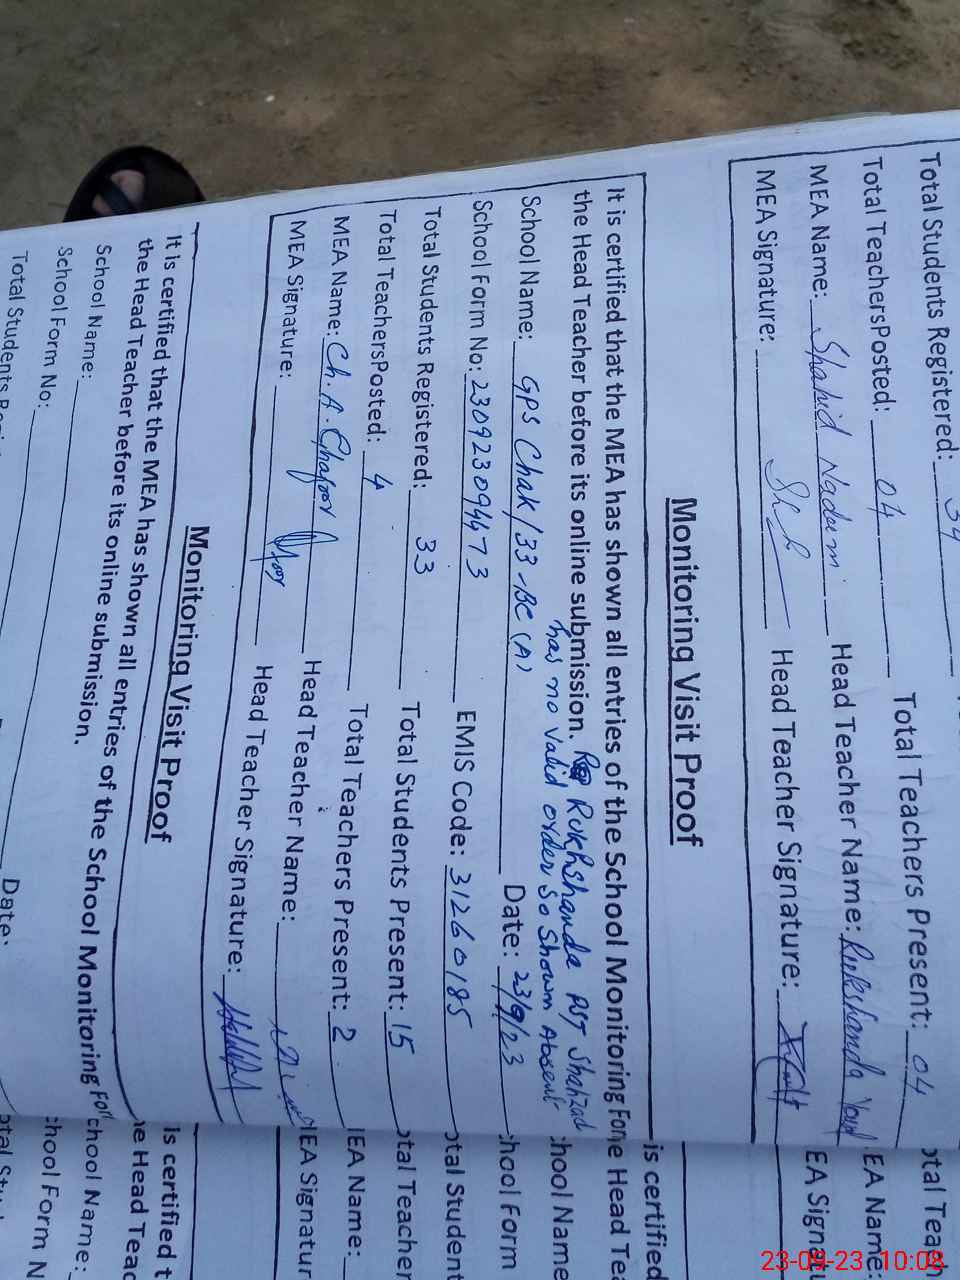 Total Students Registered: 34
Total TeachersPosted: 04 Total Teachers Present: 04
MEA Name: Shahid Nadeem Head Teacher Name: Rukhshanda
MEA Signature: Head Teacher Signature:
Monitoring Visit Proof
It is certified that the MEA has shown all entries of the School Monitoring Form
the Head Teacher before its online submission. Rukhshanda PST Shahzad
has no valid order so shown Absent
School Name: GPS Chak/33-BC (A) Date: 23/9/23
School Form No: 230923094473 EMIS Code: 31260185
Total Students Registered: 33 Total Students Present: 15
Total TeachersPosted: 4 Total Teachers Present: 2
MEA Name: Ch. A. Ghafoor Head Teacher Name:
MEA Signature: Head Teacher Signature:
Monitoring Visit Proof
It is certified that the MEA has shown all entries of the School Monitoring For
the Head Teacher before its online submission.
School Name:
School Form No: Date:
Total Students
otal Teach
EA Name:
EA Signat
is certified
e Head Tea
hool Name
hool Form
otal Student
otal Teacher
IEA Name:
IEA Signatur
is certified t
e Head Teac
chool Name:
chool Form N
otal Stu
23-09-23 10:08